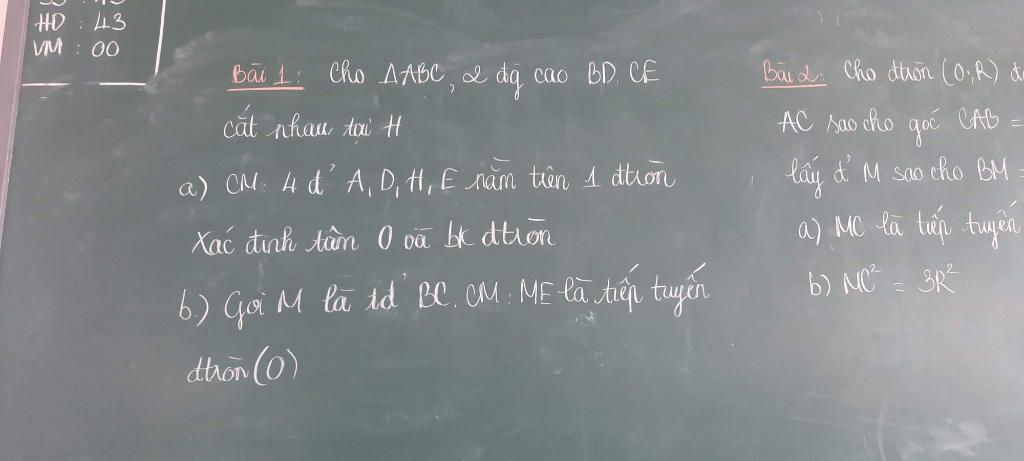 HD : 43
VM : 00
Bài 1: Cho ΔABC, 2 đg cao BD, CE
cắt nhau tại H
a) CM: 4 đ' A, D, H, E nằm trên 1 đtròn
Xác định tâm O và bk đtròn
b.) Gọi M là tđ' BC. CM: ME là tiếp tuyến
đtròn (O)
Bài 2: Cho đtròn (O; R)
AC sao cho góc CAB =
lấy đ' M sao cho BM =
a) MC là tiếp tuyến
b) MC² = 3R²